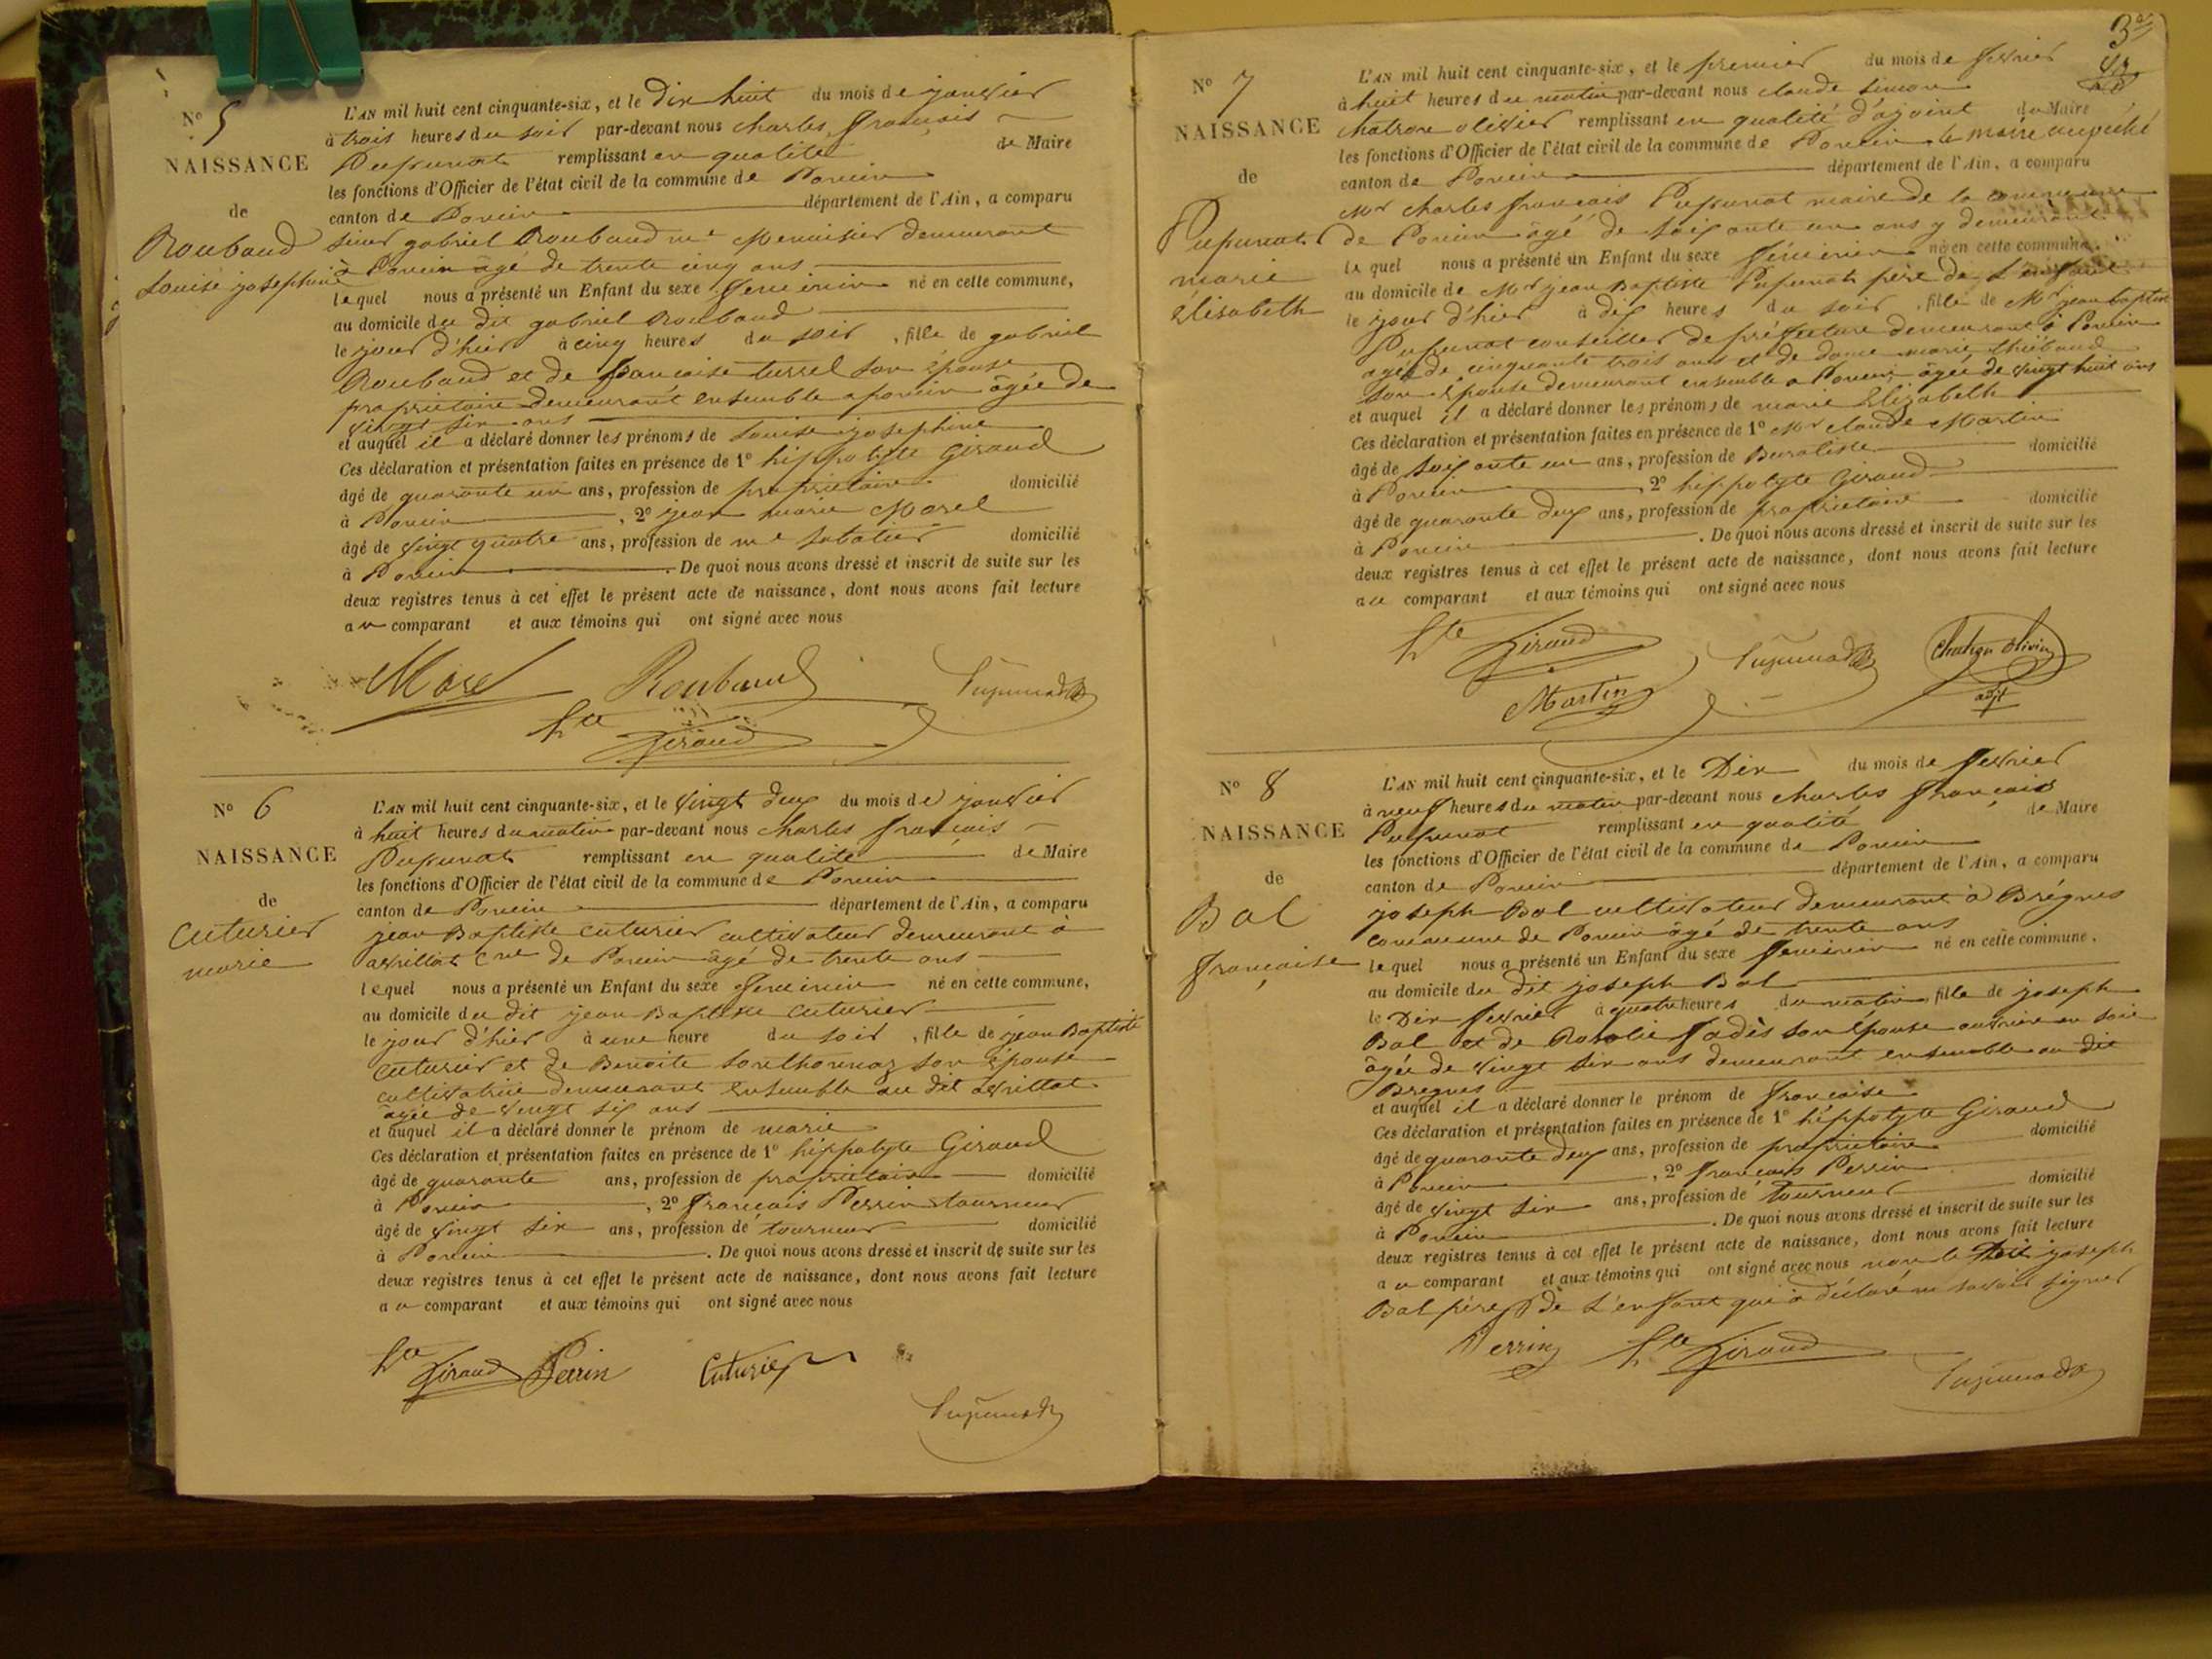 N° 5
NAISSANCE
de
Roubaud
Louise josephine
L'AN mil huit cent cinquante-six, et le Dix huit du mois de janvier
à trois heures du soir par-devant nous charles françois
Pupunat remplissant en qualité de Maire
les fonctions d'Officier de l'état civil de la commune de Poncin
canton de Poncin département de l'Ain, a comparu
sieur gabriel Roubaud me Menuisier demeurant
à Poncin âgé de trente cinq ans
lequel nous a présenté un Enfant du sexe féminin né en cette commune,
au domicile du dit gabriel Roubaud
le jour d'hier à cinq heures du soir, fille de gabriel
Roubaud et de françoise turrel son épouse
propriétaire demeurant ensemble a poncin âgée de
vingt six ans
et auquel il a déclaré donner les prénoms de Louise josephine
Ces déclaration et présentation faites en présence de 1° hippolyte Giraud
âgé de quarante un ans, profession de propriétaire domicilié
à Poncin, 2° jean marie Morel
âgé de vingt quatre ans, profession de me sabotier domicilié
à Poncin. De quoi nous avons dressé et inscrit de suite sur les
deux registres tenus à cet effet le présent acte de naissance, dont nous avons fait lecture
au comparant et aux témoins qui ont signé avec nous
Morel Roubaud Pupunat
hte Giraud
N° 6
NAISSANCE
de
Cuturier
marie
L'AN mil huit cent cinquante-six, et le vingt deux du mois de janvier
à huit heures du matin par-devant nous charles françois
Pupunat remplissant en qualité de Maire
les fonctions d'Officier de l'état civil de la commune de Poncin
canton de Poncin département de l'Ain, a comparu
jean Baptiste Cuturier cultivateur demeurant à
avrillat Cne de Poncin âgé de trente ans
lequel nous a présenté un Enfant du sexe féminin né en cette commune,
au domicile du dit jean Baptiste Cuturier
le jour d'hier à une heure du soir, fille de jean Baptiste
Cuturier et de Benoite son épouse
cultivatrice demeurant ensemble au dit avrillat
âgée de vingt six ans
et auquel il a déclaré donner le prénom de marie
Ces déclaration et présentation faites en présence de 1° hippolyte Giraud
âgé de quarante ans, profession de propriétaire domicilié
à Poncin, 2° françois Perrin tourneur
âgé de vingt six ans, profession de tourneur domicilié
à Poncin. De quoi nous avons dressé et inscrit de suite sur les
deux registres tenus à cet effet le présent acte de naissance, dont nous avons fait lecture
au comparant et aux témoins qui ont signé avec nous
hte Giraud Perrin Cuturier
Pupunat
3
N° 7
NAISSANCE
de
Pupunat
marie
Elisabeth
L'AN mil huit cent cinquante-six, et le premier du mois de février
à huit heures du matin par-devant nous claude simon
chatron olivier remplissant en qualité d'ajoint du Maire
les fonctions d'Officier de l'état civil de la commune de Poncin le maire empêché
canton de Poncin département de l'Ain, a comparu
Mr charles françois Pupunat maire de la commune
de Poncin âgé de soixante un ans y demeurant
lequel nous a présenté un Enfant du sexe féminin né en cette commune,
au domicile de Mr jean Baptiste Pupunat père de l'enfant
le jour d'hier à dix heures du soir, fille de Mr jean baptiste
Pupunat conseiller de préfecture demeurant à Poncin
âgé de cinquante trois ans et de dame marie thiébaud
son épouse demeurant ensemble a Poncin âgée de vingt huit ans
et auquel il a déclaré donner les prénoms de marie Elizabeth
Ces déclaration et présentation faites en présence de 1° Mr claude Martin
âgé de soixante un ans, profession de Buraliste domicilié
à Poncin, 2° hippolyte Giraud
âgé de quarante deux ans, profession de propriétaire domicilié
à Poncin. De quoi nous avons dressé et inscrit de suite sur les
deux registres tenus à cet effet le présent acte de naissance, dont nous avons fait lecture
au comparant et aux témoins qui ont signé avec nous
hte Giraud Pupunat Chatron Olivier
Martin adjt
N° 8
NAISSANCE
de
Bal
françoise
L'AN mil huit cent cinquante-six, et le Dix du mois de février
à neuf heures du matin par-devant nous charles françois
Pupunat remplissant en qualité de Maire
les fonctions d'Officier de l'état civil de la commune de Poncin
canton de Poncin département de l'Ain, a comparu
joseph Bal cultivateur demeurant à Brégnes
commune de Poncin âgé de trente ans
lequel nous a présenté un Enfant du sexe féminin né en cette commune,
au domicile du dit joseph Bal
le Dix février à quatre heures du matin, fille de joseph
Bal et de Rosalie fadès son épouse ouvrière en soie
âgée de vingt six ans demeurant ensemble au dit
Bregnes
et auquel il a déclaré donner le prénom de françoise
Ces déclaration et présentation faites en présence de 1° hippolyte Giraud
âgé de quarante deux ans, profession de propriétaire domicilié
à Poncin, 2° françois Perrin
âgé de vingt six ans, profession de tourneur domicilié
à Poncin. De quoi nous avons dressé et inscrit de suite sur les
deux registres tenus à cet effet le présent acte de naissance, dont nous avons fait lecture
au comparant et aux témoins qui ont signé avec nous non le dit joseph
Bal père de l'enfant qui a déclaré ne savoir signer
Perrin hte Giraud
Pupunat